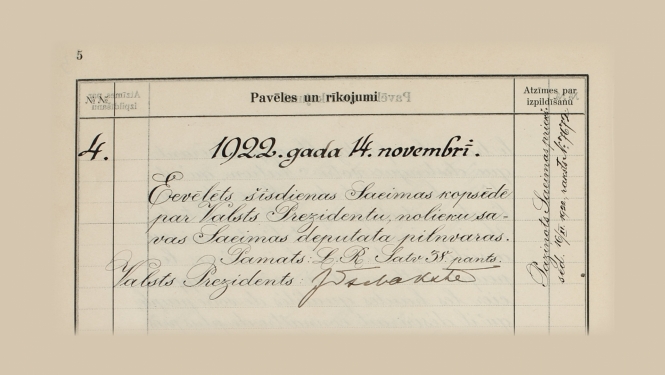 5
№№
Pavēles un rīkojumi
Atzīmes par
izpildīšanu
4.
1922. gada 14. novembrī.
Eevēlēts šīsdienas Saeimas kopsēdē
par Valsts Prezidentu, nolieku sa-
vas Saeimas deputata pilnvaras.
Pamats: L. R. Satv 38. pants.
Valsts Prezidents:
Paziņots Saeimas priekš.